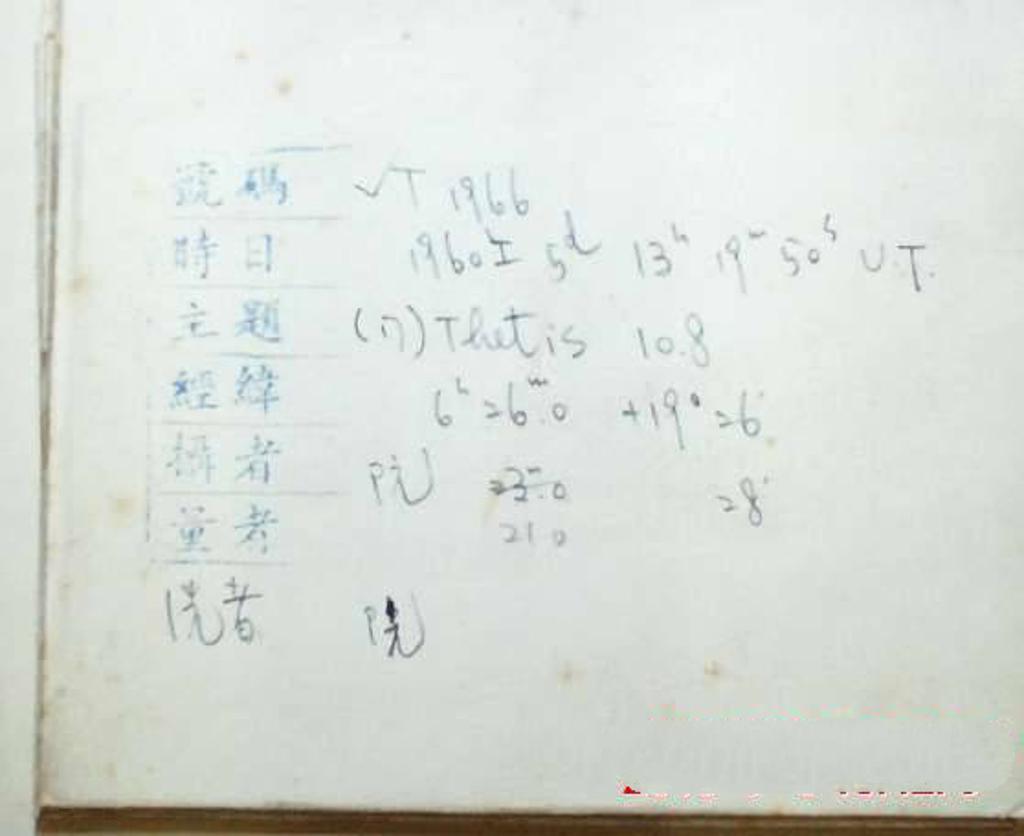 號碼 √T 1966
時日 1960 I 5d 13h 19m 50s U.T.
主題 (17) Thetis 10.8
經緯 6h 26m.0 +19° 26'
攝者 阮 23m.0 28'
量者 21.0
洗者 阮